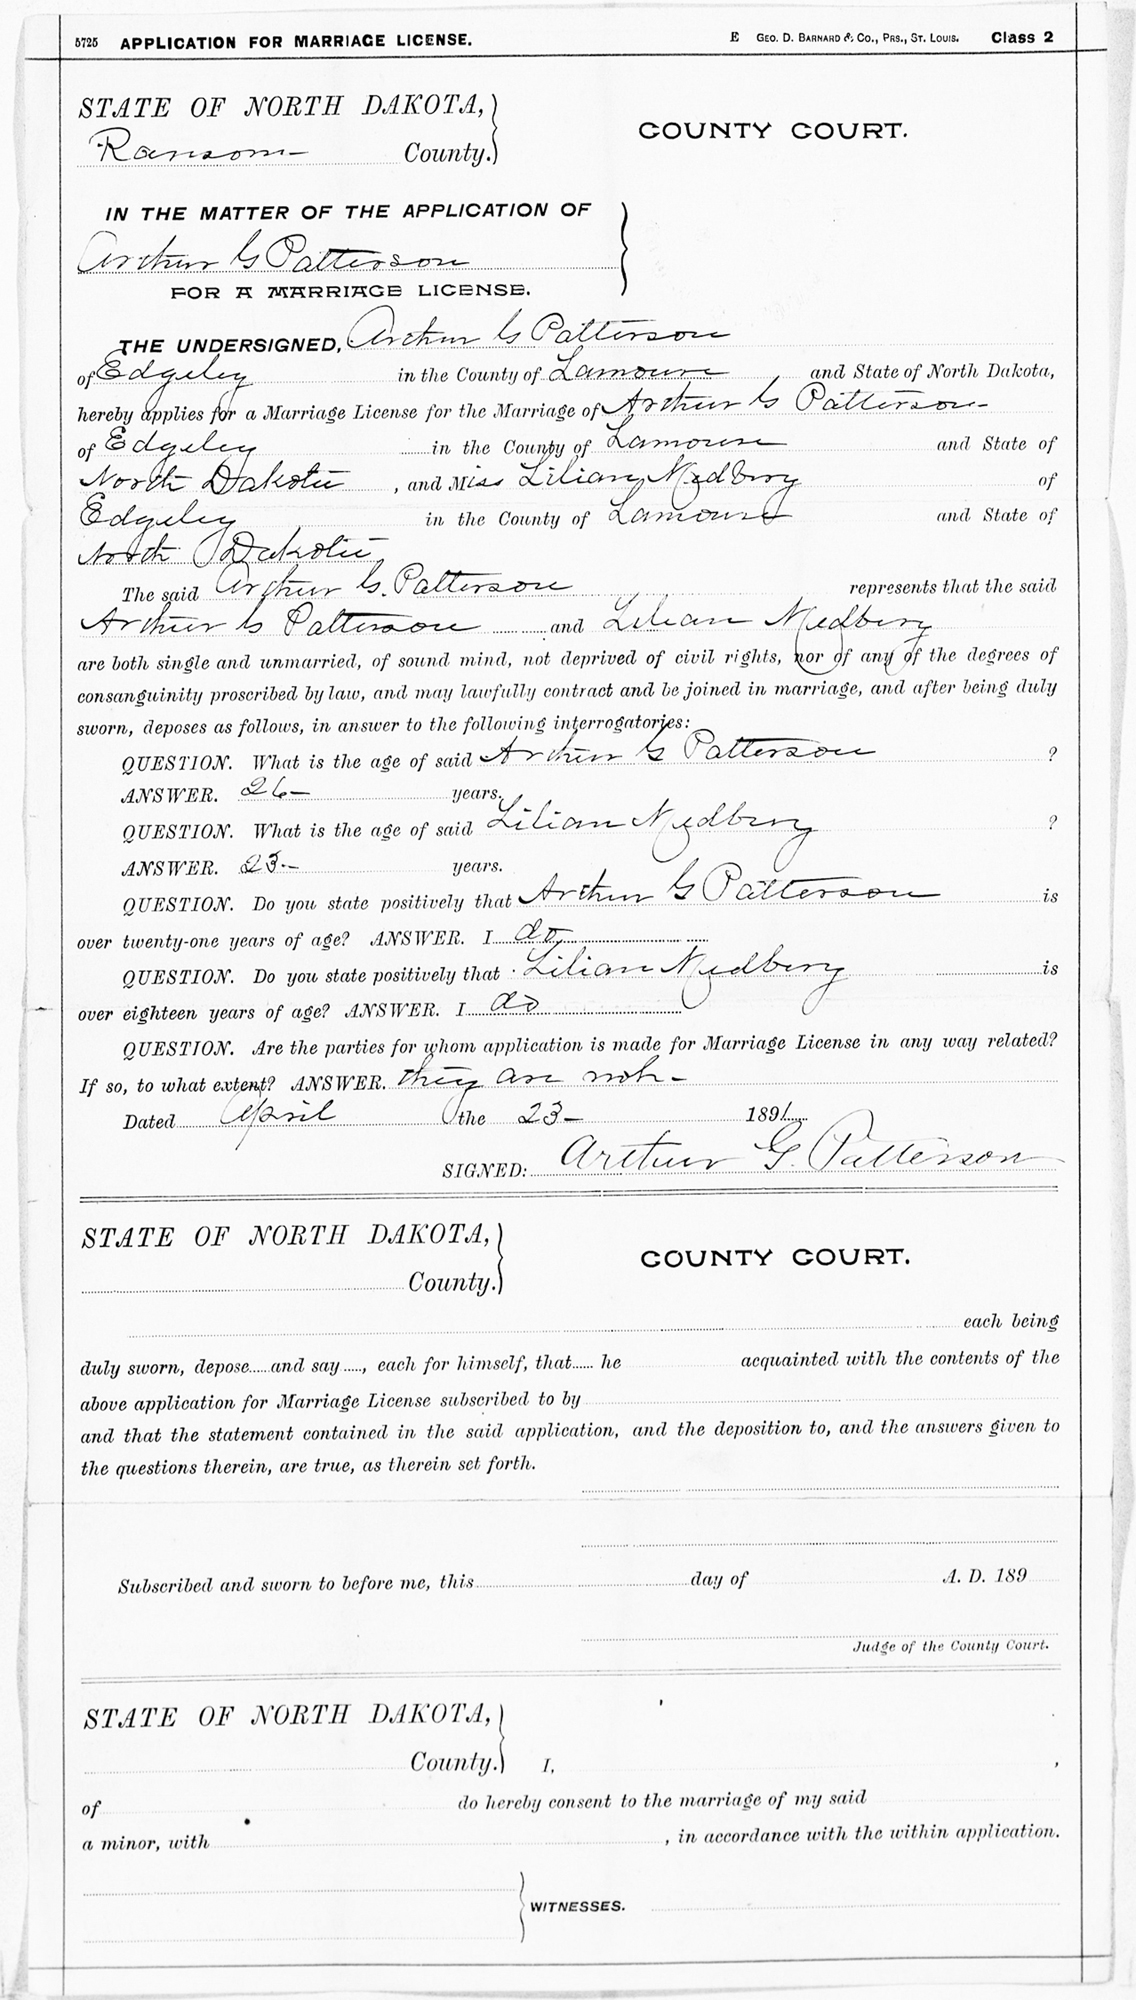 5725 APPLICATION FOR MARRIAGE LICENSE. E GEO. D. BARNARD & CO., PRS., ST. LOUIS. Class 2
STATE OF NORTH DAKOTA,
Ransom County. COUNTY COURT.
IN THE MATTER OF THE APPLICATION OF
Arthur G Patterson
FOR A MARRIAGE LICENSE.
THE UNDERSIGNED, Arthur G Patterson
of Edgeley in the County of Lamoure and State of North Dakota,
hereby applies for a Marriage License for the Marriage of Arthur G Patterson
of Edgeley in the County of Lamoure and State of
North Dakota, and Miss Lilian Medbery of
Edgeley in the County of Lamoure and State of
North Dakota
The said Arthur G. Patterson represents that the said
Arthur G Patterson and Lilian Medbery
are both single and unmarried, of sound mind, not deprived of civil rights, nor of any of the degrees of
consanguinity proscribed by law, and may lawfully contract and be joined in marriage, and after being duly
sworn, deposes as follows, in answer to the following interrogatories:
QUESTION. What is the age of said Arthur G Patterson ?
ANSWER. 26- years.
QUESTION. What is the age of said Lilian Medbery ?
ANSWER. 23- years.
QUESTION. Do you state positively that Arthur G Patterson is
over twenty-one years of age? ANSWER. I do
QUESTION. Do you state positively that Lilian Medbery is
over eighteen years of age? ANSWER. I do
QUESTION. Are the parties for whom application is made for Marriage License in any way related?
If so, to what extent? ANSWER. they are not-
Dated April the 23- 1891
SIGNED: Arthur G. Patterson
STATE OF NORTH DAKOTA,
County. COUNTY COURT.
each being
duly sworn, depose and say, each for himself, that he acquainted with the contents of the
above application for Marriage License subscribed to by
and that the statement contained in the said application, and the deposition to, and the answers given to
the questions therein, are true, as therein set forth.
Subscribed and sworn to before me, this day of A. D. 189
Judge of the County Court.
STATE OF NORTH DAKOTA,
County. I, ,
of do hereby consent to the marriage of my said
a minor, with , in accordance with the within application.
WITNESSES.